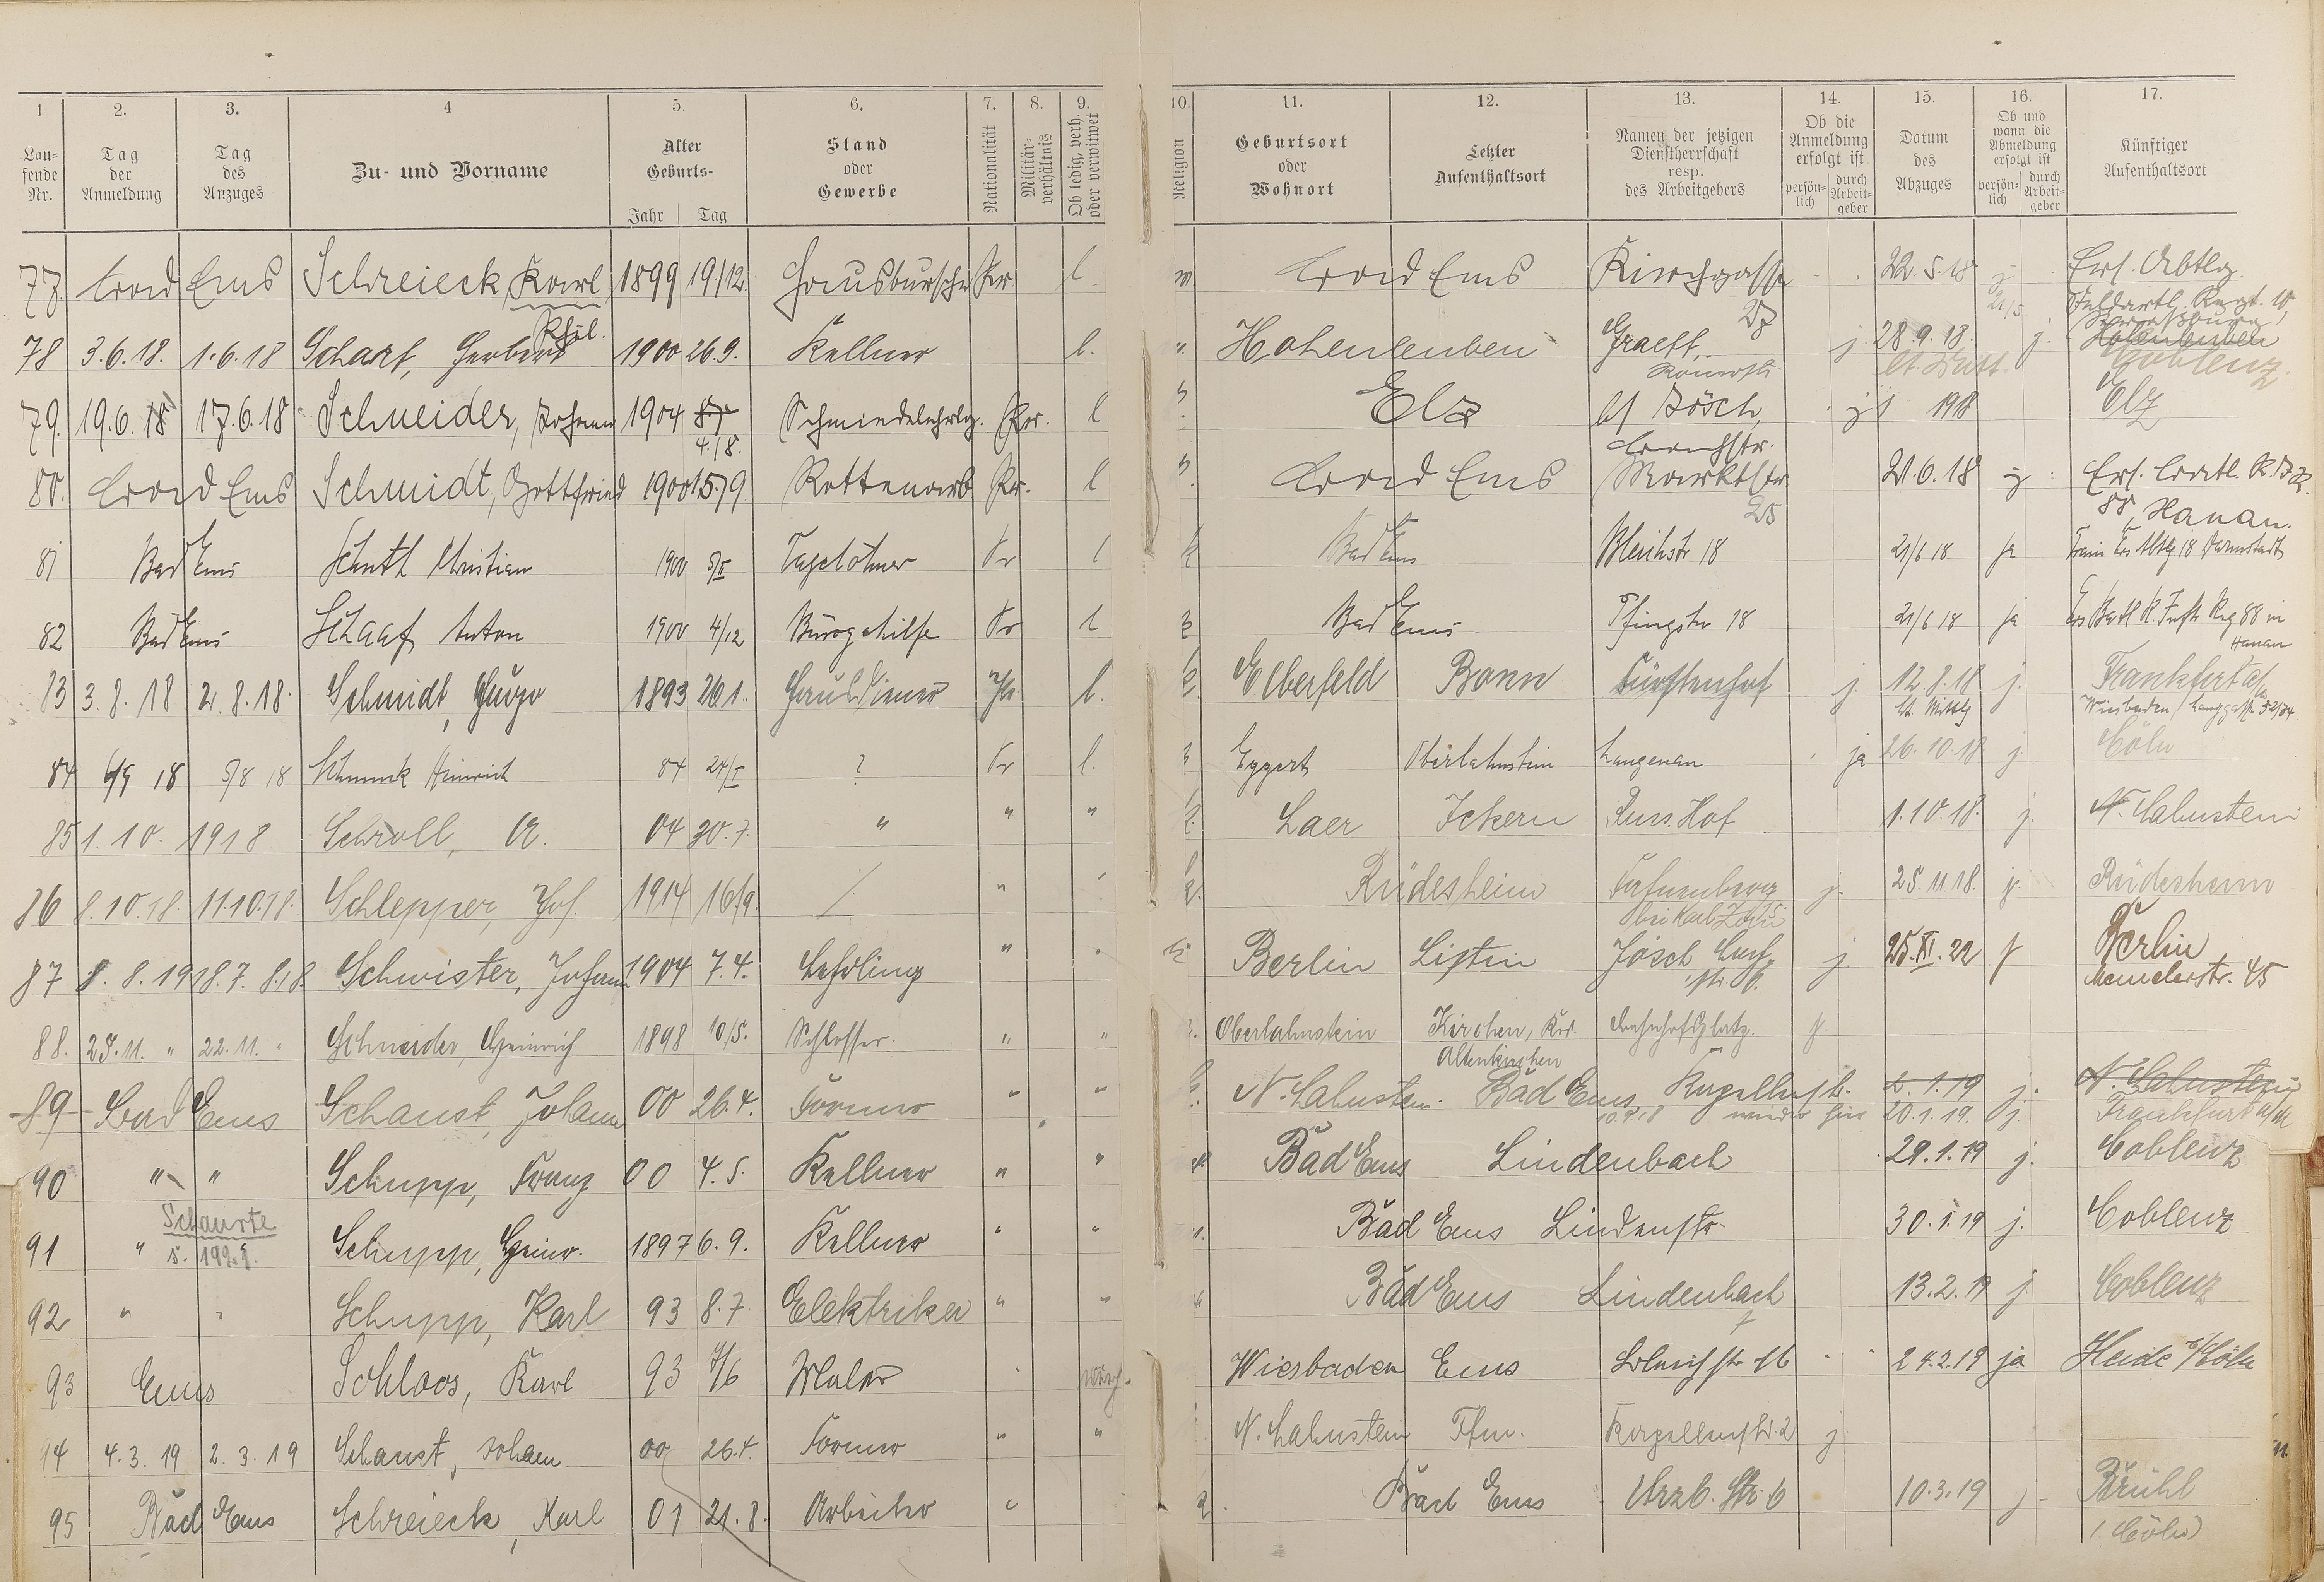 1 2. 3. 4 5. 6. 7. 8. 9. 10. 11. 12. 13. 14. 15. 16. 17.
Lau-
fende
Nr.
Tag
der
Anmeldung
Tag
des
Anzuges
Zu- und Vorname
Alter
Geburts-
Jahr Tag
Stand
oder
Gewerbe
Nationalität
Militär-
verhältnis
Ob ledig, verh.
oder verwitwet
Religion
Geburtsort
oder
Wohnort
Letzter
Aufenthaltsort
Namen der jetzigen
Dienstherrschaft
resp.
des Arbeitgebers
Ob die
Anmeldung
erfolgt ist
persön-
lich
durch
Arbeit-
geber
Datum
des
Abzuges
Ob und
wann die
Abmeldung
erfolgt ist
persön-
lich
durch
Arbeit-
geber
Künftiger
Aufenthaltsort
77. Bad Ems Schreieck, Karl 1899 19/12. Hausbursche Pr l Bad Ems Kirchgasse 22.5.18 j Ers. Abtlg.
27 21/5 Feldartl. Regt. 10,
78 3.6.18. 1.6.18 Scharf, Herbert 1900 26.9. Kellner l. Hohenleuben Graeff, j. 28.9.18. j. Hohenleuben
Römerstr. Coblenz
79. 19.6.18 17.6.18 Schneider, Johann 1904 Schmiedelehrlg. Pr. l Elz b/ Jösch, j 1918 Elz
4./8. Bachstr.
80. Bad Ems Schmidt, Gottfried 1900 15/9 Rottenarb Pr. l Bad Ems Marktstr. 21.6.18 j Ers. Batl. R.I.R.
25 88, Hanau.
81 Bad Ems Schuth Christian 1900 5/II Tagelöhner Pr l Bad Ems Bleichstr 18 21/6 18 ja Train Ers Abtlg 18 Darmstadt
82 Bad Ems Schaaf Anton 1900 4/12 Bürogehilfe Pr l Bad Ems Pfingstr 18 21/6 18 ja Ers Batl R. Inftr Reg 88 in
Hanau
83 3.8.18 2.8.18. Schmidt, Hugo 1893 26.1. Hausdiener Pr l. Elberfeld Bonn Fürstenhof j. 12.8.18 j. Frankfurt a/
Wiesbaden / Langgasse 52/54.
84 6/9 18 5/8 18 Heinrich 84 24/I ? Pr l. Eggert Oberlahnstein Langenau ja 26.10.18 j. Cöln
85 1.10. 1918 Schroll, A. 04 30.7. " " " Laer Ickern Russ. Hof 1.10.18. j. N. Lahnstein
86 8.10.18. 11.10.18. Schlepper, Jos. 1914 16/9. " Rüdesheim j. 25.11.18. j. Rüdesheim
bei Karl
87 8.8.1918. 7.8.18. Schwister, Johann 1904 7.4. Lehrling " Berlin Jösch, j. 25.XI.22 j Berlin
str. 6. Memelerstr. 45
88. 25.11. " 22.11. " Schneider, Heinrich 1898 10/5. Schlosser. " " Oberlahnstein Kirchen, Bahnhofsplatz. j.
Altenkirchen
89 Bad Ems Schaust, Johann 00 26.4. Former " " N. Lahnstein. Bad Ems, Kapellenstr. 2.1.19 j. N. Lahnstein
wieder hier 20.1.19. j. Frankfurt a/M
90 " " Schupp, Franz 00 4.5. Kellner " " Bad Ems Lindenbach 29.1.19 j. Coblenz
Schaurte
91 " s. 199.9. Schupp, Heinr. 1897 6.9. Kellner " " Bad Ems Lindenstr. 30.1.19 j. Coblenz
92 " " Schupp, Karl 93 8.7. Elektriker " " Bad Ems Lindenbach 13.2.19 j Coblenz
93 Ems Schloos, Karl 93 7/6 Maler " Wiesbaden Ems Bleichstr. 16 24.2.19 ja Heide b/Cöln
94 4.3.19 2.3.19 Schaust, Johann 00 26.4. Former " " N. Lahnstein Ffm. Kapellenstr. 2 j
95 Bad Ems Schreieck, Karl 01 21.8. Arbeiter " Bad Ems Str. 6 10.3.19 j Brühl
(Cöln)